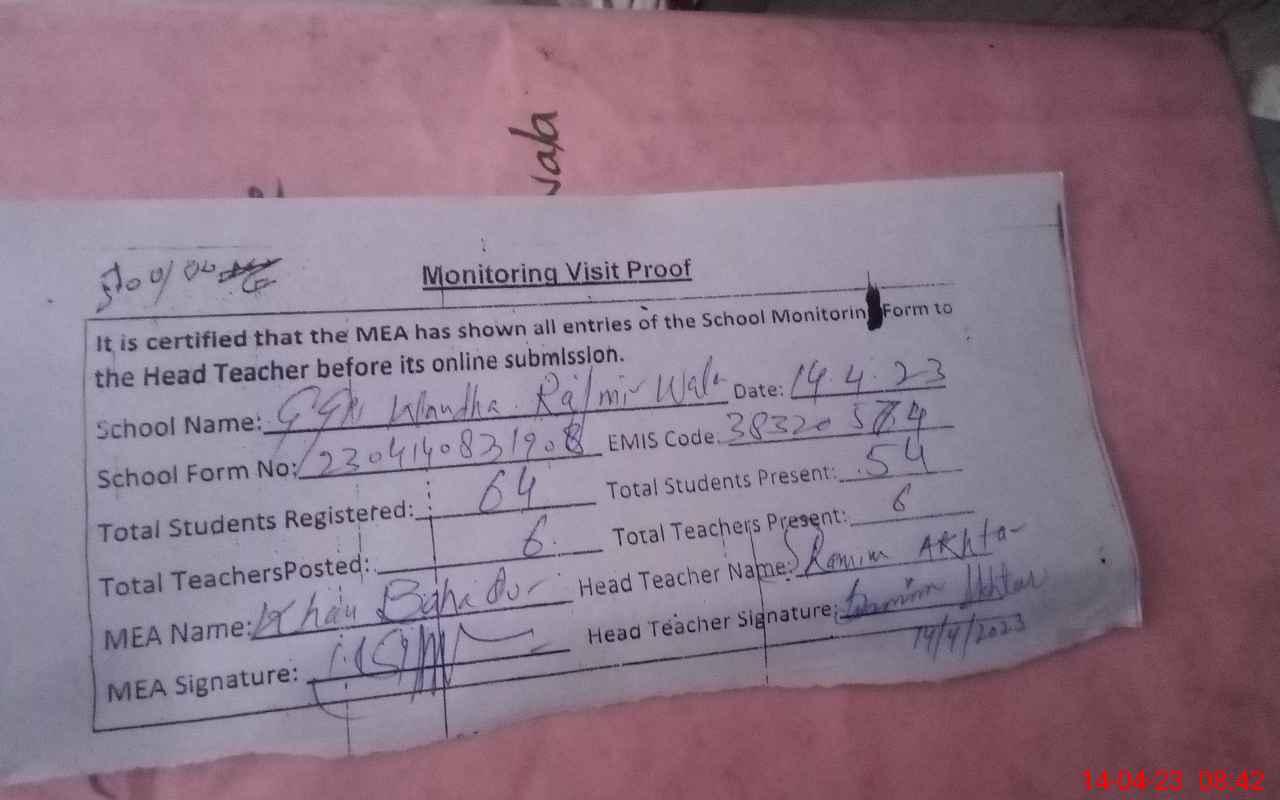 wala
Monitoring Visit Proof
It is certified that the MEA has shown all entries of the School Monitoring Form to
the Head Teacher before its online submission.
School Name: Wandha Rajmir Wala Date: 14.4.23
School Form No: 2304140831908 EMIS Code. 38320574
Total Students Registered: 64 Total Students Present: 54
Total TeachersPosted: 6 Total Teachers Present: 6
MEA Name: Khan Bahadur Head Teacher Name: Shamim Akhtar
MEA Signature: Head Teacher Signature: Shamim Akhtar
14/4/2023
14-04-23 08:42